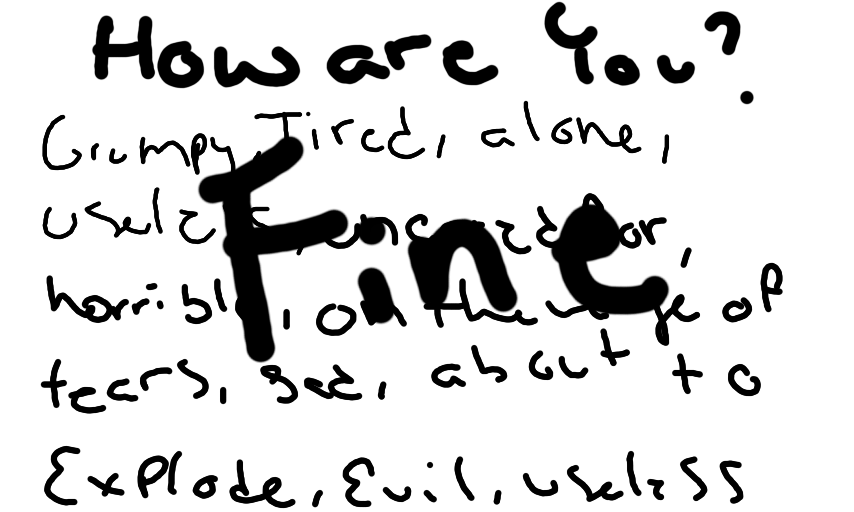 How are You?
Grumpy, Tired, alone,
useless, uncared for,
Fine
horrible, on the verge of
tears, sad, about to
Explode, Evil, useless